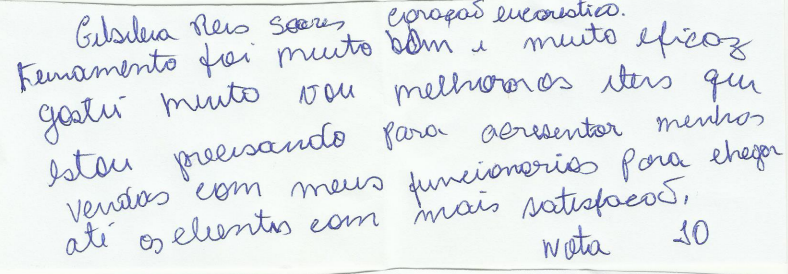 Gilsileia Reis Soares coração eucaristico.
treinamento foi muito bom e muito eficaz
gostei muito vou melhorar os itens que
estou precisando para acresentar minhas
vendas com meus funcionarios para chegar
até os clientes com mais satisfacaõ,
Nota 10